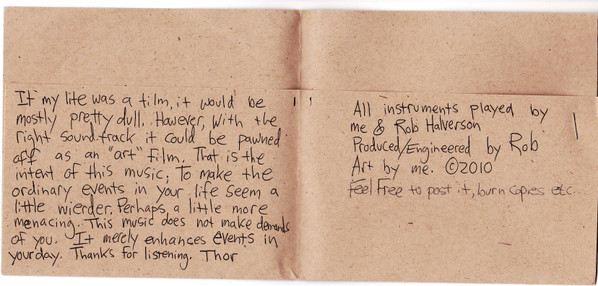 If my life was a film, it would be
mostly pretty dull. However, with the
right soundtrack it could be pawned
off as an "art" film. That is the
intent of this music, To make the
ordinary events in your life seem a
little wierder. Perhaps, a little more
menacing. This music does not make demands
of you. It merely enhances events in
your day. Thanks for listening. Thor
All instruments played by
me & Rob Halverson
Produced/Engineered by Rob
Art by me. ©2010
feel Free to post it, burn copies etc...